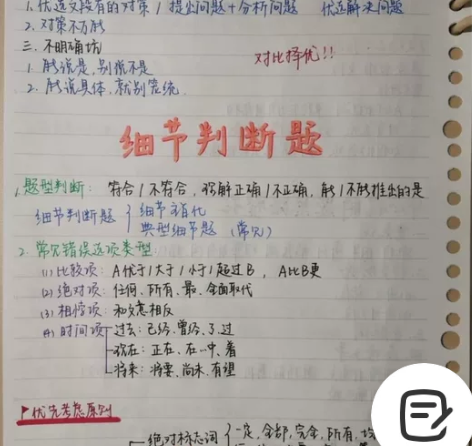 1. 优选文段有的对策 / 提出问题+分析问题 优选解决问题
2. 对策不万能
三. 不明确坑
1. 能说是,别说不是
2. 能说具体,就别笼统.
对比择优!!
细节判断题
1. 题型判断: 符合 / 不符合, 理解正确 / 不正确, 能 / 不能推出的是
细节判断题 { 细节主旨化
典型细节题 (常见)
2. 常见错误选项类型
(1) 比较项: A优于 / 大于 / 小于 / 超过B, A比B更
(2) 绝对项: 任何、所有、最、全面取代
(3) 相悖项: 和文意相反
(4) 时间项 过去: 已经、曾经、了、过
现在: 正在、在…中、着
将来: 将要、尚未、有望
优先考虑原则
绝对标志词 { 一定、全部、完全、所有、均